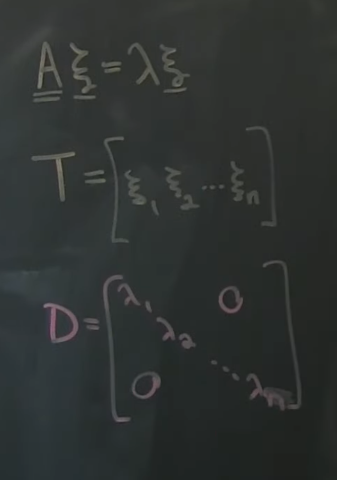 A ξ = λ ξ
T = [ξ₁ ξ₂ ... ξₙ]
D = [λ₁ 0
λ₂
⋱
0 λₙ]